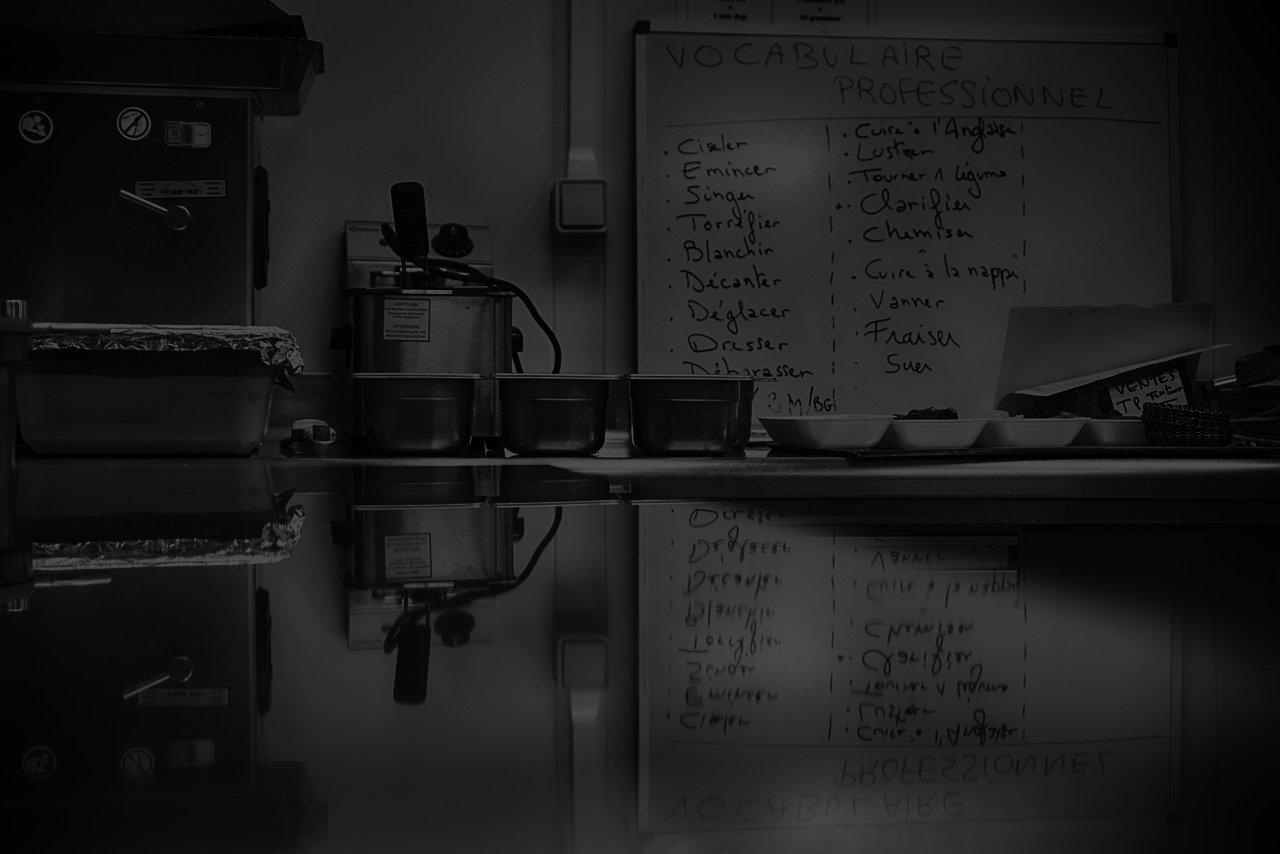 VOCABULAIRE
PROFESSIONNEL
. Ciseler
. Emincer
. Singer
. Torréfier
. Blanchir
. Décanter
. Déglacer
. Dresser
Débarasser
. Cuire à l'Anglaise
. Lustrer
. Tourner 1 légume
. Clarifier
. Chemiser
. Cuire "à la nappe"
. Vanner
. Fraiser
. Suer
ATTENTION!
VENTES
TP